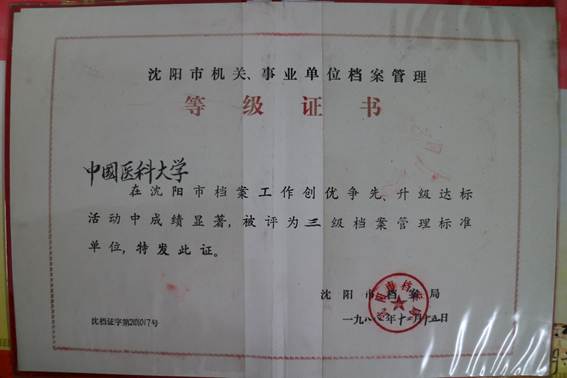 沈阳市机关、事业单位档案管理
等级证书
中國医科大学
在沈阳市档案工作创优争先、升级达标
活动中成绩显著,被评为三级档案管理标准
单位,特发此证。
沈阳市档案局
一九八 年十二月十五日
沈档证字第 号